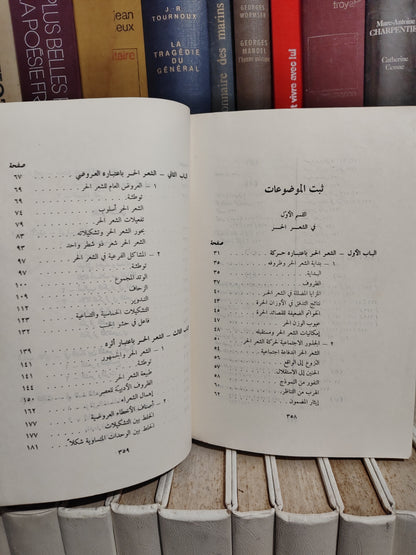 PLUS BELLES
LA POÉSIE FR
jean
eux
J.-R
TOURNOUX
LA
TRAGÉDIE
DU
GÉNÉRAL
onnaire des marins
GEORGES
WORMSER
GEORGES
MANDEL
l'homme politique
et vivre avec lui
troyat
Marc-Antoine
CHARPENTIER
Catherine
Cessac
ثبت الموضوعات
القسم الأول
في الشعر الحر
صفحة
الباب الأول – الشعر الحر باعتباره حركة ٣١
١ – بداية الشعر الحر وظروفه
البداية
الظروف
المزايا المضللة في الشعر الحر
نتائج التدفق في الأوزان الحرة
الخواتم الضعيفة للقصائد الحرة
عيوب الوزن الحر
إمكانيات الشعر الحر ومستقبله
٢ – الجذور الاجتماعية لحركة الشعر الحر
الشعر الحر اندفاعة اجتماعية ٥٢
النزوع إلى الواقع ٥٦
الحنين إلى الاستقلال ٥٧
النفور من النموذج ٥٨
الهرب من التناظر ٦٠
إيثار المضمون ٦٢
٣٥٨
صفحة
الباب الثاني – الشعر الحر باعتباره العروضي ٦٧
١ – العروض العام للشعر الحر ٦٩
توطئة ٦٩
الشعر الحر أسلوب ٧٤
تفعيلات الشعر الحر ٧٩
بحور الشعر الحر وتشكيلاته ٨٣
الشعر الحر شعر ذو شطر واحد ٩٣
٢ – المشاكل الفرعية في الشعر الحر ٩٧
توطئة ٩٧
الوتد المجموع ١٠٠
الزحاف
التدوير
التشكيلات الخماسية والتساعية ١٢٣
فاعل في حشو الخبب ١٣٢
الباب الثالث – الشعر الحر باعتبار أثره ١٣٩
١ – الشعر الحر والجمهور ١٤١
توطئة ١٤١
طبيعة الشعر الحر
الظروف الأدبية للعصر ١٥٠
إهمال الشعراء ١٦٢
٢ – أصناف الأخطاء العروضية ١٧٧
الخلط بين التشكيلات ١٧٧
الخلط بين الوحدات المتساوية شكلاً ١٨١
٣٥٩